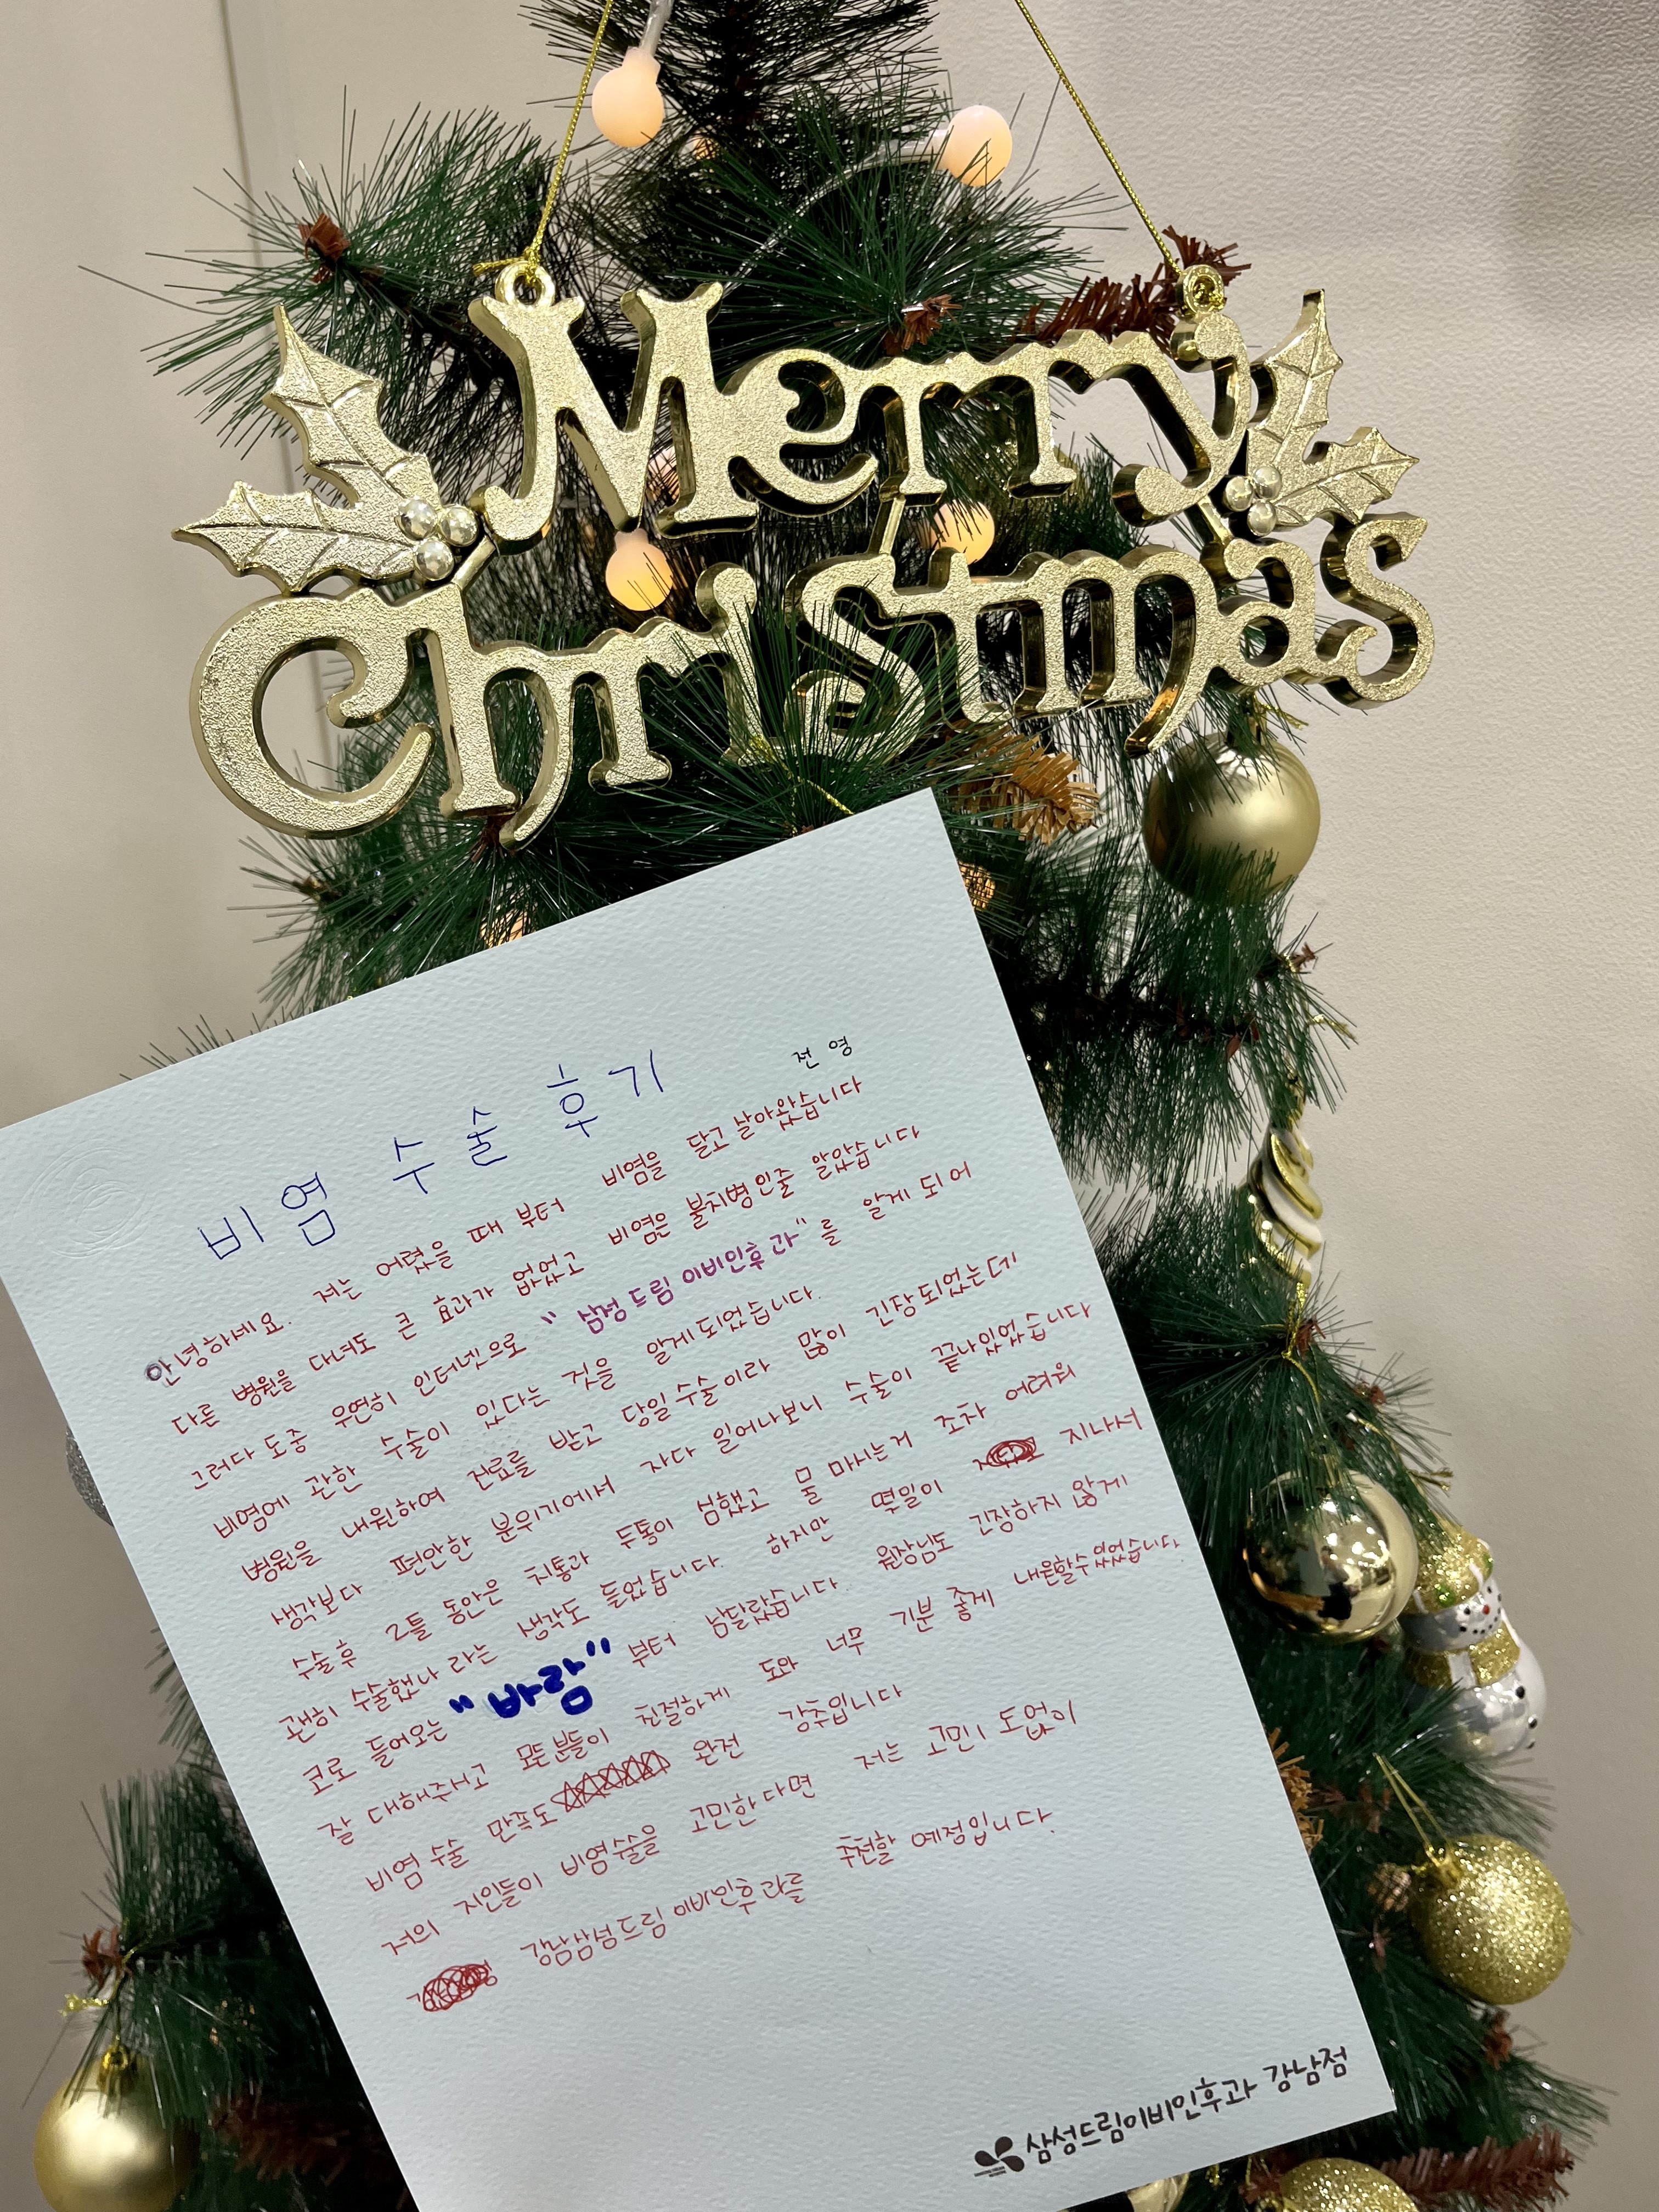 Merry
Christmas
비염 수술 후기
전 영
안녕하세요. 저는 어렸을 때 부터 비염을 달고 살아왔습니다
다른 병원을 다녀도 큰 효과가 없었고 비염은 불치병인줄 알았습니다
그러다 도중 우연히 인터넷으로 "삼성드림이비인후과"를 알게 되어
비염에 관한 수술이 있다는 것을 알게되었습니다.
병원을 내원하여 진료를 받고 당일수술이라 많이 긴장되었는데
생각보다 편안한 분위기에서 자다 일어나보니 수술이 끝나있었습니다
수술후 2틀 동안은 치통과 두통이 심했고 물 마시는거 조차 어려워
괜히 수술했나 라는 생각도 들었습니다. 하지만 몇일이 지나서
코로 들어오는 "바람" 부터 남달랐습니다. 원장님도 긴장하지 않게
잘 대해주시고 모든분들이 친절하게 도와 너무 기분 좋게 내원할수있었습니다
비염 수술 만족도 완전 강추입니다
저의 지인들이 비염수술을 고민한다면 저는 고민 도없이
강남삼성드림이비인후과를 추천할 예정입니다.
삼성드림이비인후과 강남점